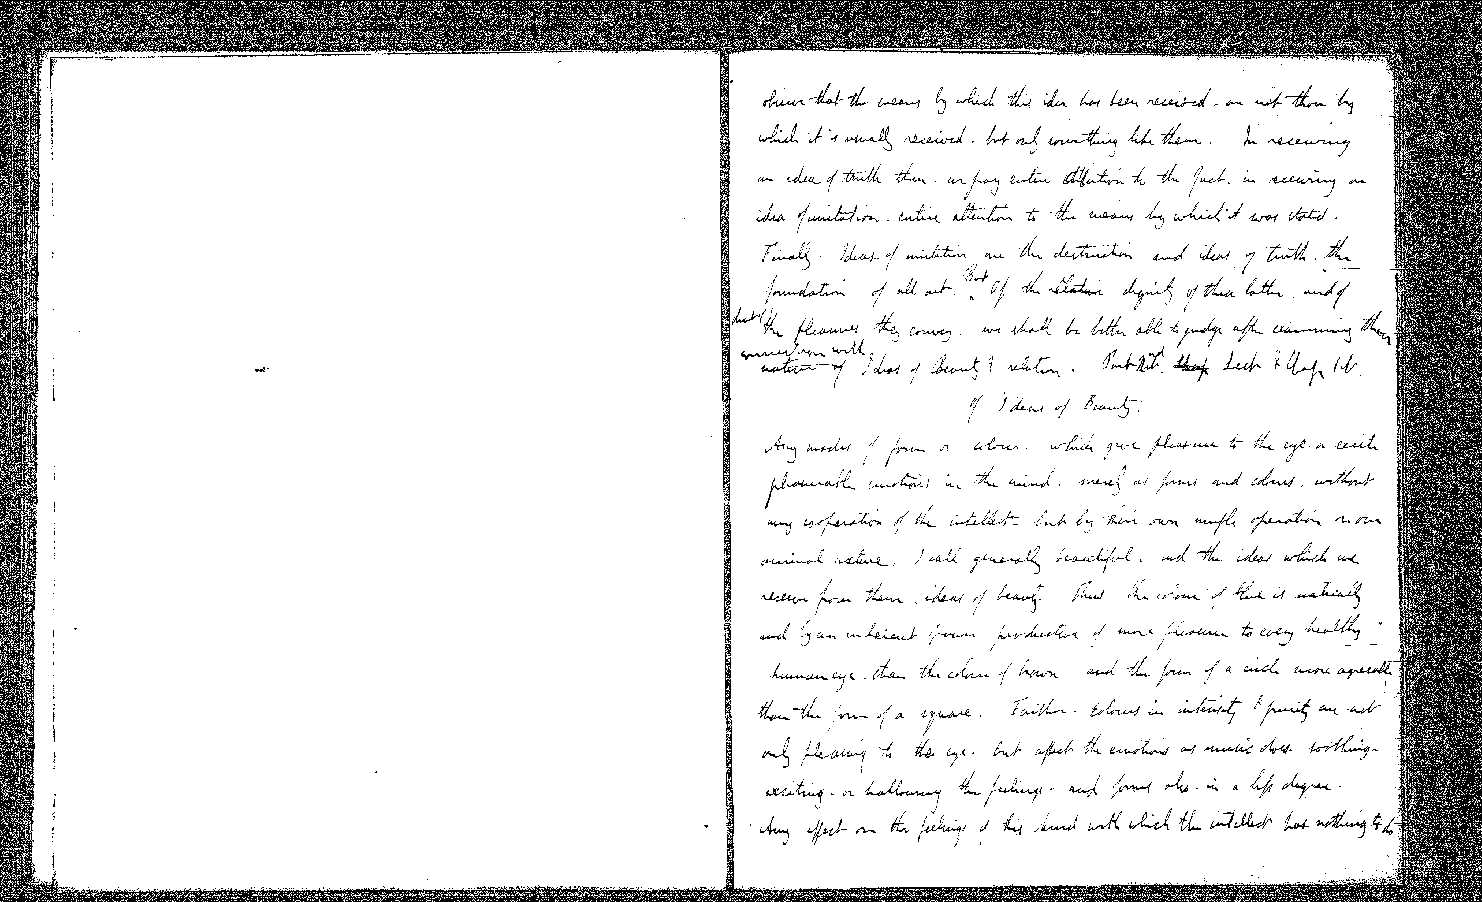 observe that the means by which this idea has been received - are not those by
which it is usually received. but only something like them. In receiving
an idea of truth then. we pay entire attention to the fact. in receiving an
idea of imitation. entire attention to the means by which it was stated.
Finally. Ideas of imitation are the destruction and ideas of truth. the
foundation of all art. But Of the relative dignity of these latter. and of
the pleasures they convey. we shall be better able to judge after examining their
connection with
nature of Ideas of Beauty & relation. Part Sect Chap IV.
Of Ideas of Beauty.
Any modes of form or colour. which give pleasure to the eye. or excite
pleasurable emotions in the mind. merely as forms and colours. without
any cooperation of the intellect - but by their own simple operation on our
animal nature. I call generally beautiful. and the ideas which we
receive from them. ideas of beauty. Thus the colour of blue is naturally
and by an inherent power productive of more pleasure to every healthy
human eye. than the colour of brown and the form of a circle more agreeable
than the form of a square. Farther. colours in intensity & purity are not
only pleasing to the eye. but affect the emotions as music does. soothing -
exciting - or hallowing the feelings. and forms also. in a less degree.
Any effect on the feelings of this kind with which the intellect has nothing to do